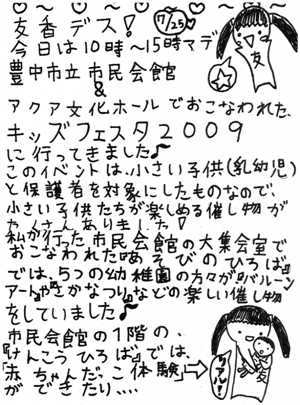 友香デス!
7/25
今日は10時〜15時マデ
友
豊中市立市民会館
&
アクア文化ホールでおこなわれた、
キッズフェスタ2009
に行ってきました♪
このイベントは、小さい子供(乳幼児)
と保護者を対象にしたものなので、
小さい子供たちが楽しめる催し物が
たくさんありました!
私が行った市民会館の大集会室で
おこなわれた『あそびのひろば』
では、5つの幼稚園の方々が『バルーン
アート』や『さかなつり』などの楽しい催し物
をしていました♪
市民会館の1階の、
『けんこうひろば』では、
「赤ちゃんだっこ体験」
ができたり、…
リアル!
友